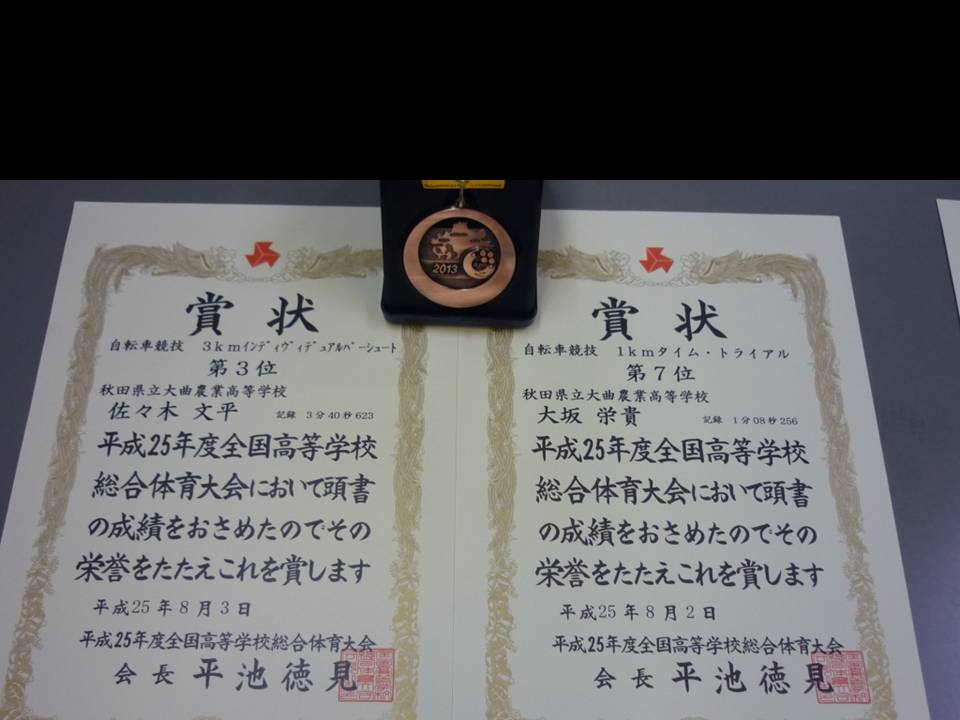 2013
賞状
自転車競技 3kmインディヴィデュアルパーシュート
第3位
秋田県立大曲農業高等学校
佐々木 文平 記録 3分40秒623
平成25年度全国高等学校
総合体育大会において頭書
の成績をおさめたのでその
栄誉をたたえこれを賞します
平成25年8月3日
平成25年度全国高等学校総合体育大会
会長 平池徳見
賞状
自転車競技 1kmタイム・トライアル
第7位
秋田県立大曲農業高等学校
大坂 栄貴 記録 1分08秒256
平成25年度全国高等学校
総合体育大会において頭書
の成績をおさめたのでその
栄誉をたたえこれを賞します
平成25年8月2日
平成25年度全国高等学校総合体育大会
会長 平池徳見